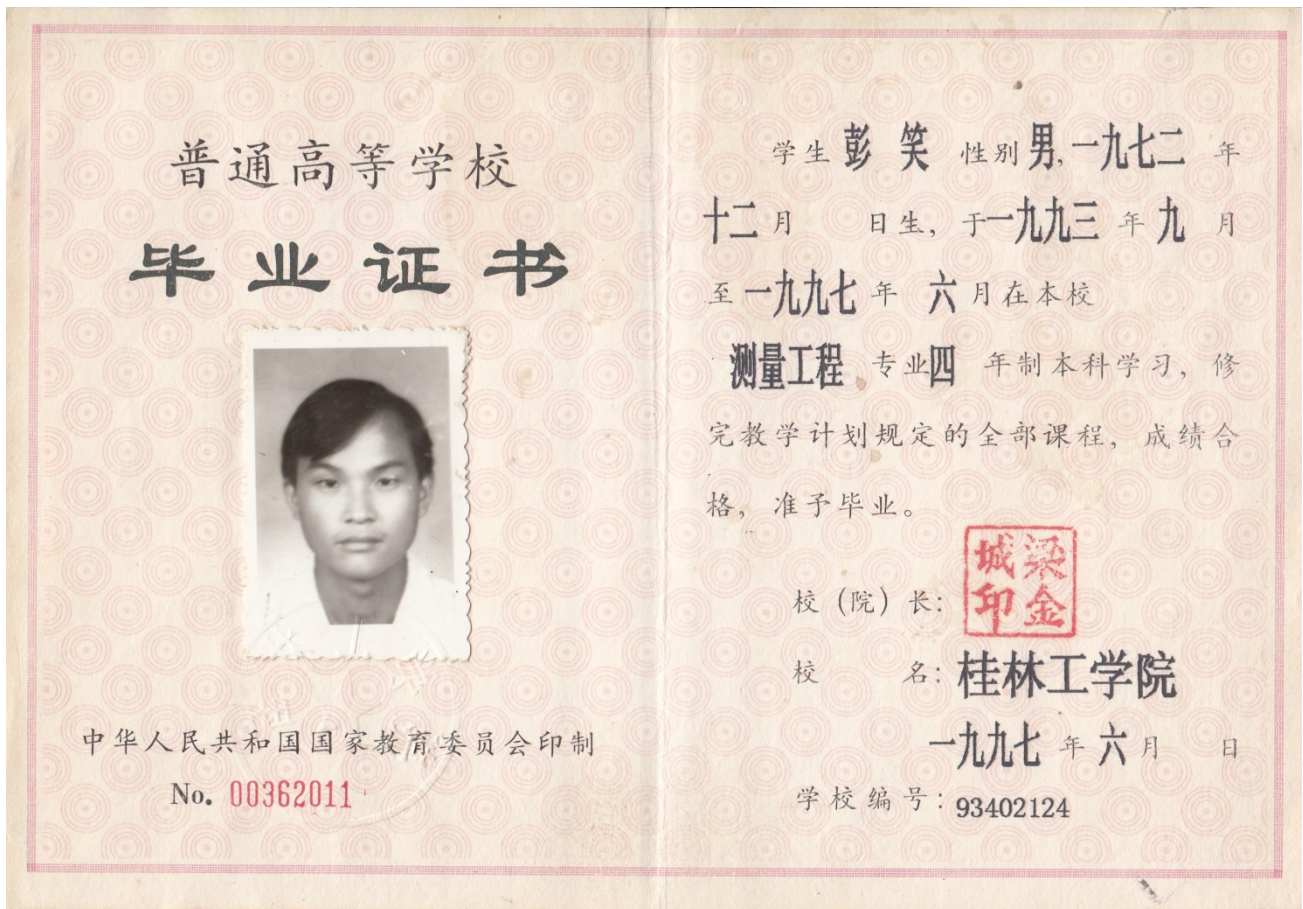 普通高等学校
毕业证书
中华人民共和国国家教育委员会印制
No. 00362011
学生 彭笑 性别 男, 一九七二 年
十二 月 日生, 于 一九九三 年 九 月
至 一九九七 年 六 月在本校
测量工程 专业 四 年制本科学习, 修
完教学计划规定的全部课程, 成绩合
格, 准予毕业。
校(院)长: 梁金城印
校 名: 桂林工学院
一九九七 年 六 月 日
学校编号: 93402124